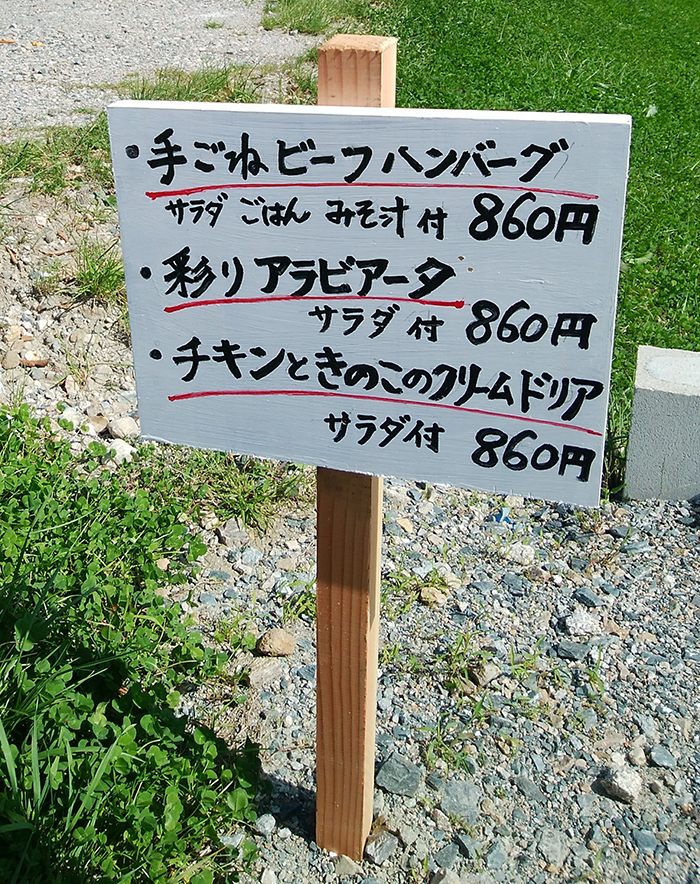 ・手ごねビーフハンバーグ
サラダ ごはん みそ汁 付 860円
・彩り アラビアータ
サラダ 付 860円
・チキンときのこのクリームドリア
サラダ付 860円